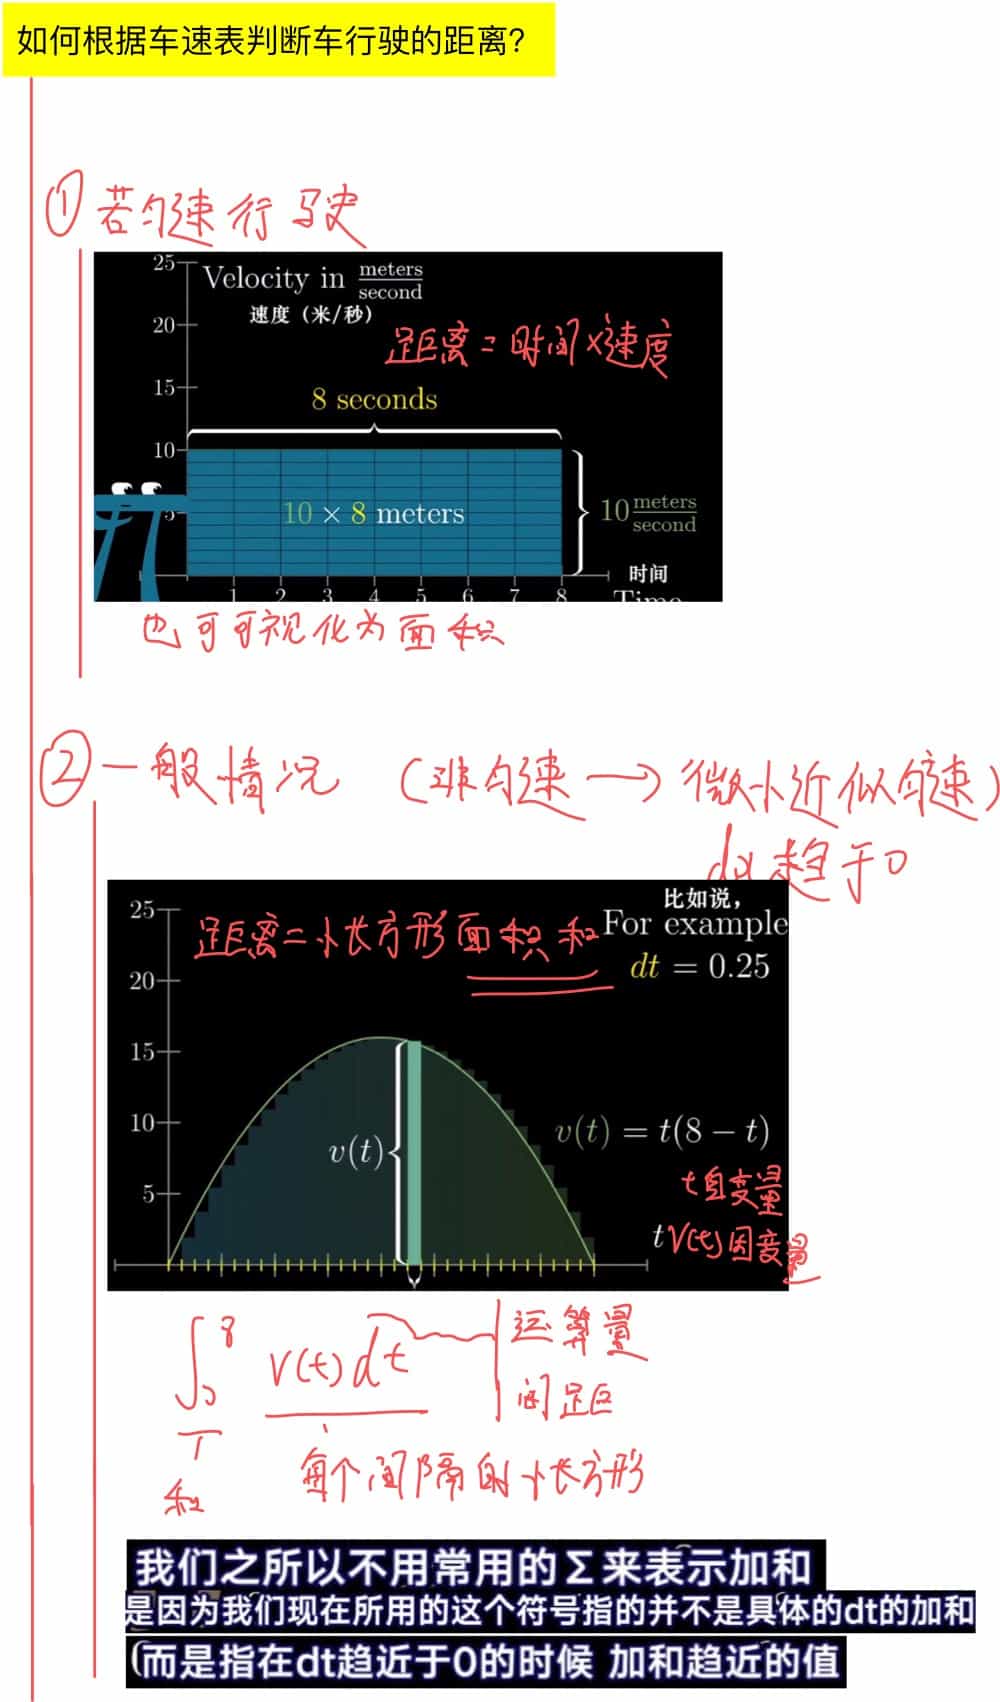 如何根据车速表判断车行驶的距离？
① 若匀速行驶
25
Velocity in meters/second
速度（米/秒）
20
距离=时间×速度
15
8 seconds
10
10 × 8 meters
10 meters/second
5
时间
1 2 3 4 5 6 7 8
Time
也可可视化为面积
② 一般情况 （非匀速→微小近似匀速）
dt趋于0
比如说，
25
距离=小长方形面积和
For example
dt = 0.25
20
15
10
v(t)
v(t) = t(8 − t)
t自变量
5
t
V(t)因变量
∫₀⁸ V(t)dt
运算量
间距
每个间隔的小长方形
和
我们之所以不用常用的Σ来表示加和
是因为我们现在所用的这个符号指的并不是具体的dt的加和
(而是指在dt趋近于0的时候 加和趋近的值